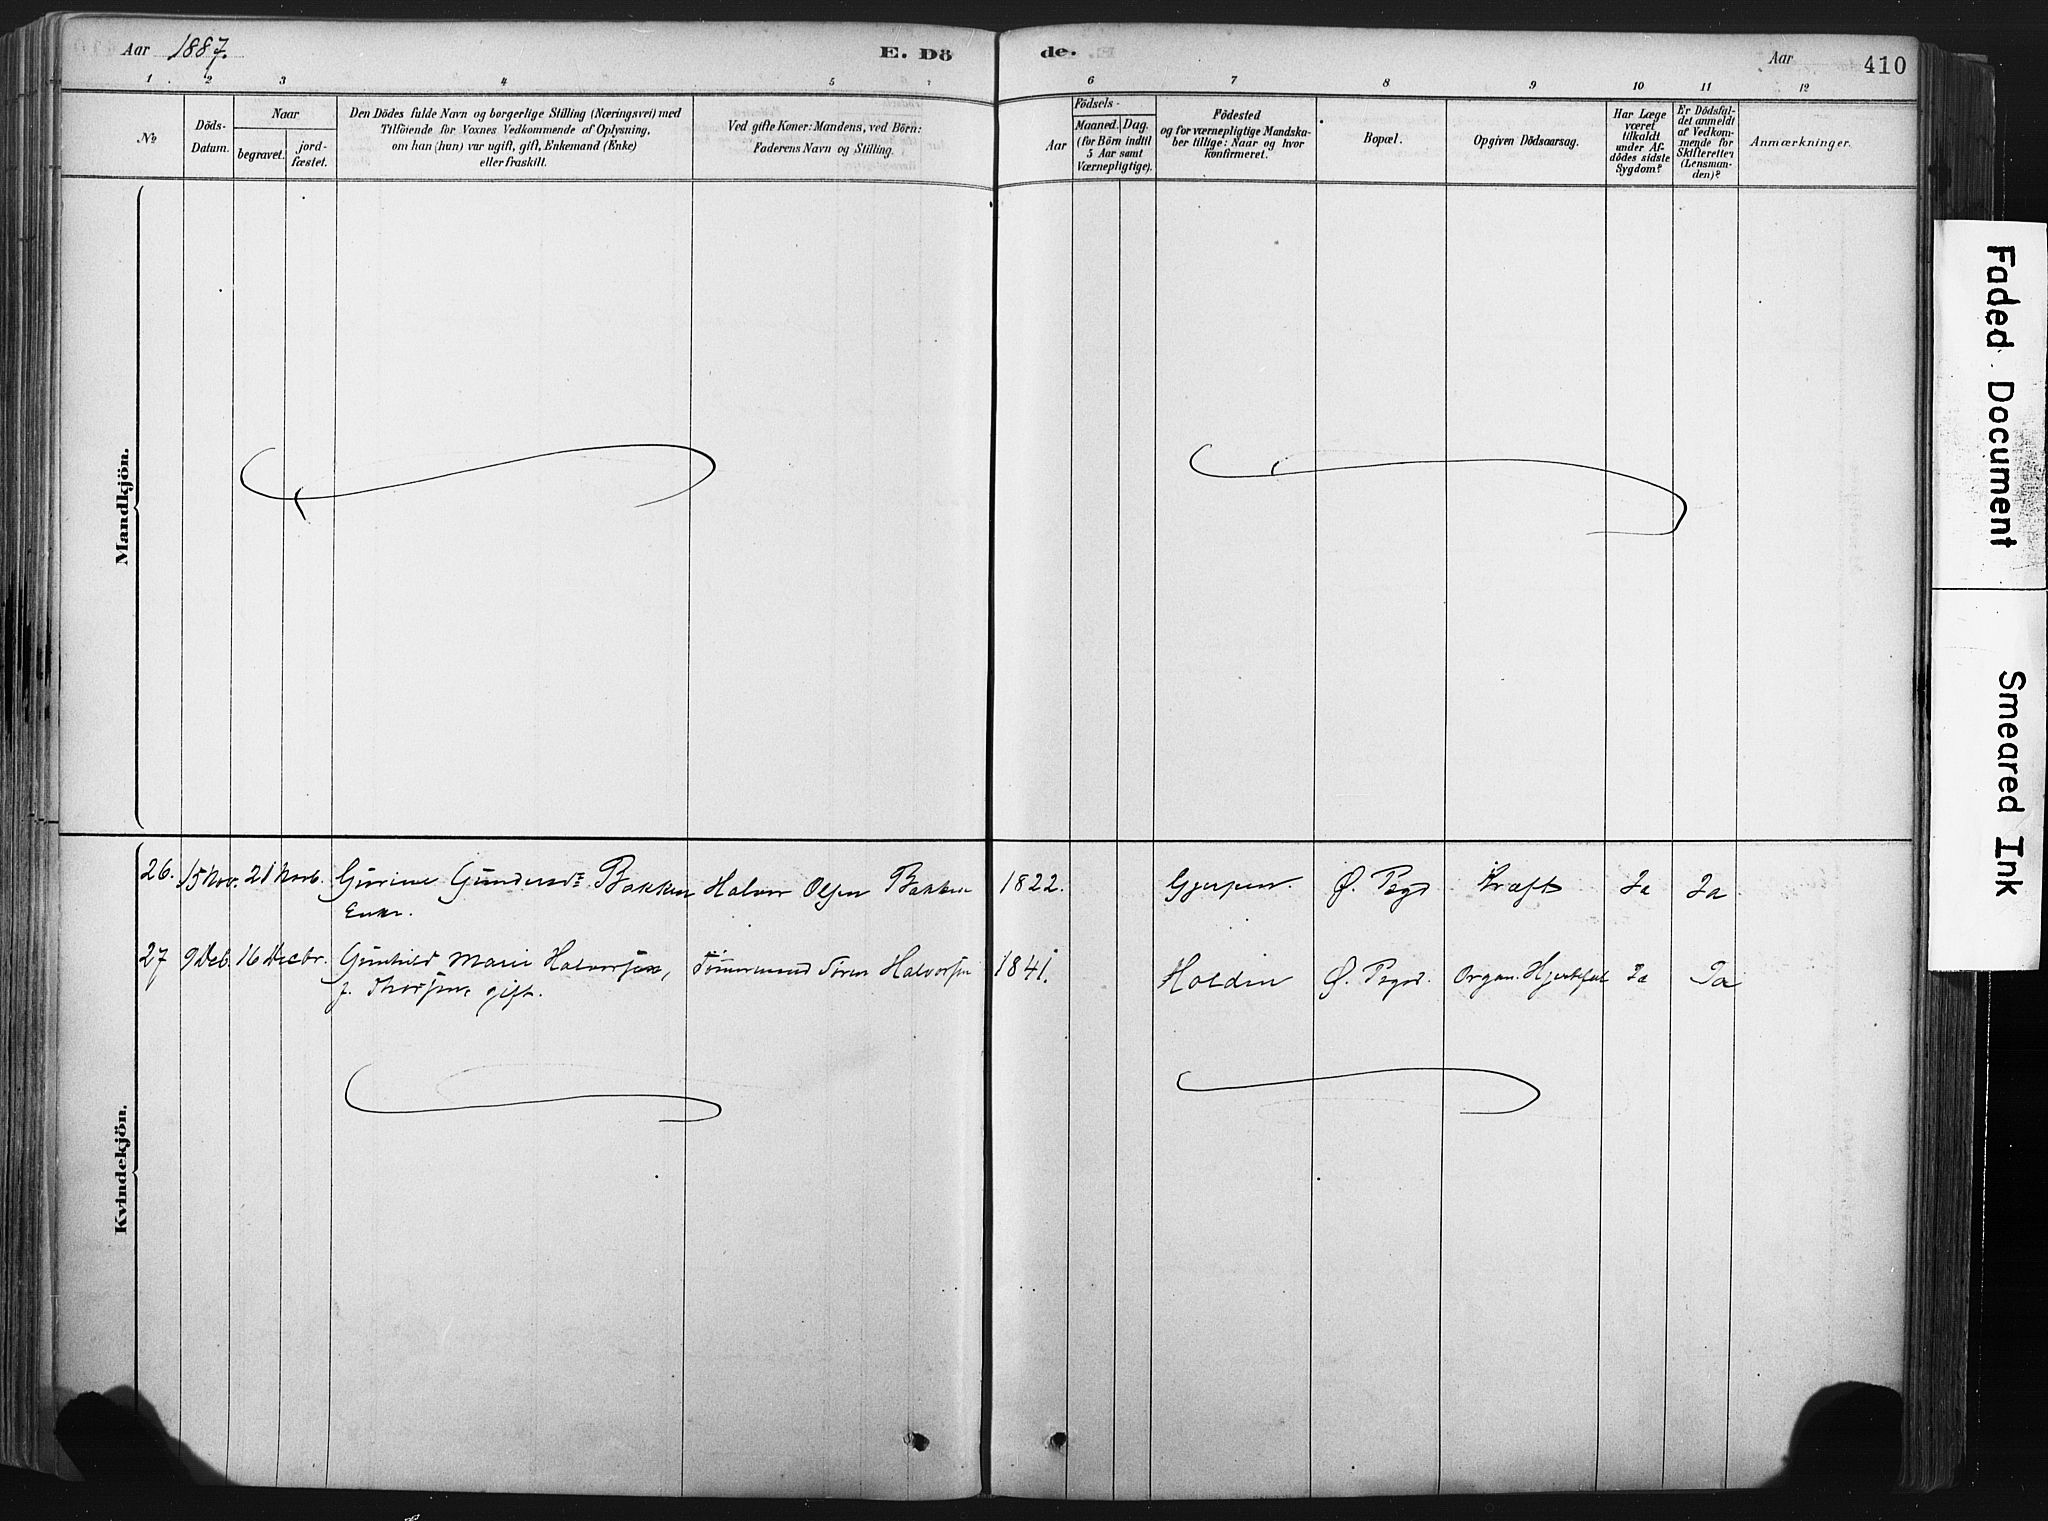 Aar 1887.
E. Dö
de.
Aar
410
1 2 3 4 5
6 7 8 9 10 11 12
No
Döds-
Datum.
Naar
begravet.
jord-
fæstet.
Den Dödes fulde Navn og borgerlige Stilling (Næringsvei) med
Tilföiende for Voxnes Vedkommende af Oplysning,
om han (hun) var ugift, gift, Enkemand (Enke)
eller fraskilt.
Ved gifte Koner: Mandens, ved Börn:
Faderens Navn og Stilling.
Födsels-
Aar
Maaned.
Dag.
(for Börn indtil
5 Aar samt
Værnepligtige).
Födested
og for værnepligtige Mandska-
ber tillige: Naar og hvor
konfirmeret.
Bopæl.
Opgiven Dödsaarsag.
Har Læge
været
tilkaldt
under Af-
dödes sidste
Sygdom?
Er Dödsfal-
det anmeldt
af Vedkom-
mende for
Skifteretten
(Lensman-
den)?
Anmærkninger.
Mandkjön.
Kvindekjön.
26. 15 Nov. 21 Novb. Gurine Gundersdr Bakken Halvor Olsen Bakken 1822. Gjerpen. Ø. Pogd Kræft Ja Ja
Enke.
27 9 Deb. 16 Decbr. Gunhild Marie Halvorsen, Tømmermand Søren Halvorsen 1841. Holden Ø. Porsgr. Organ. Hjertefeil Ja Ja
f. Thorsen, gift.
Faded Document
Smeared Ink